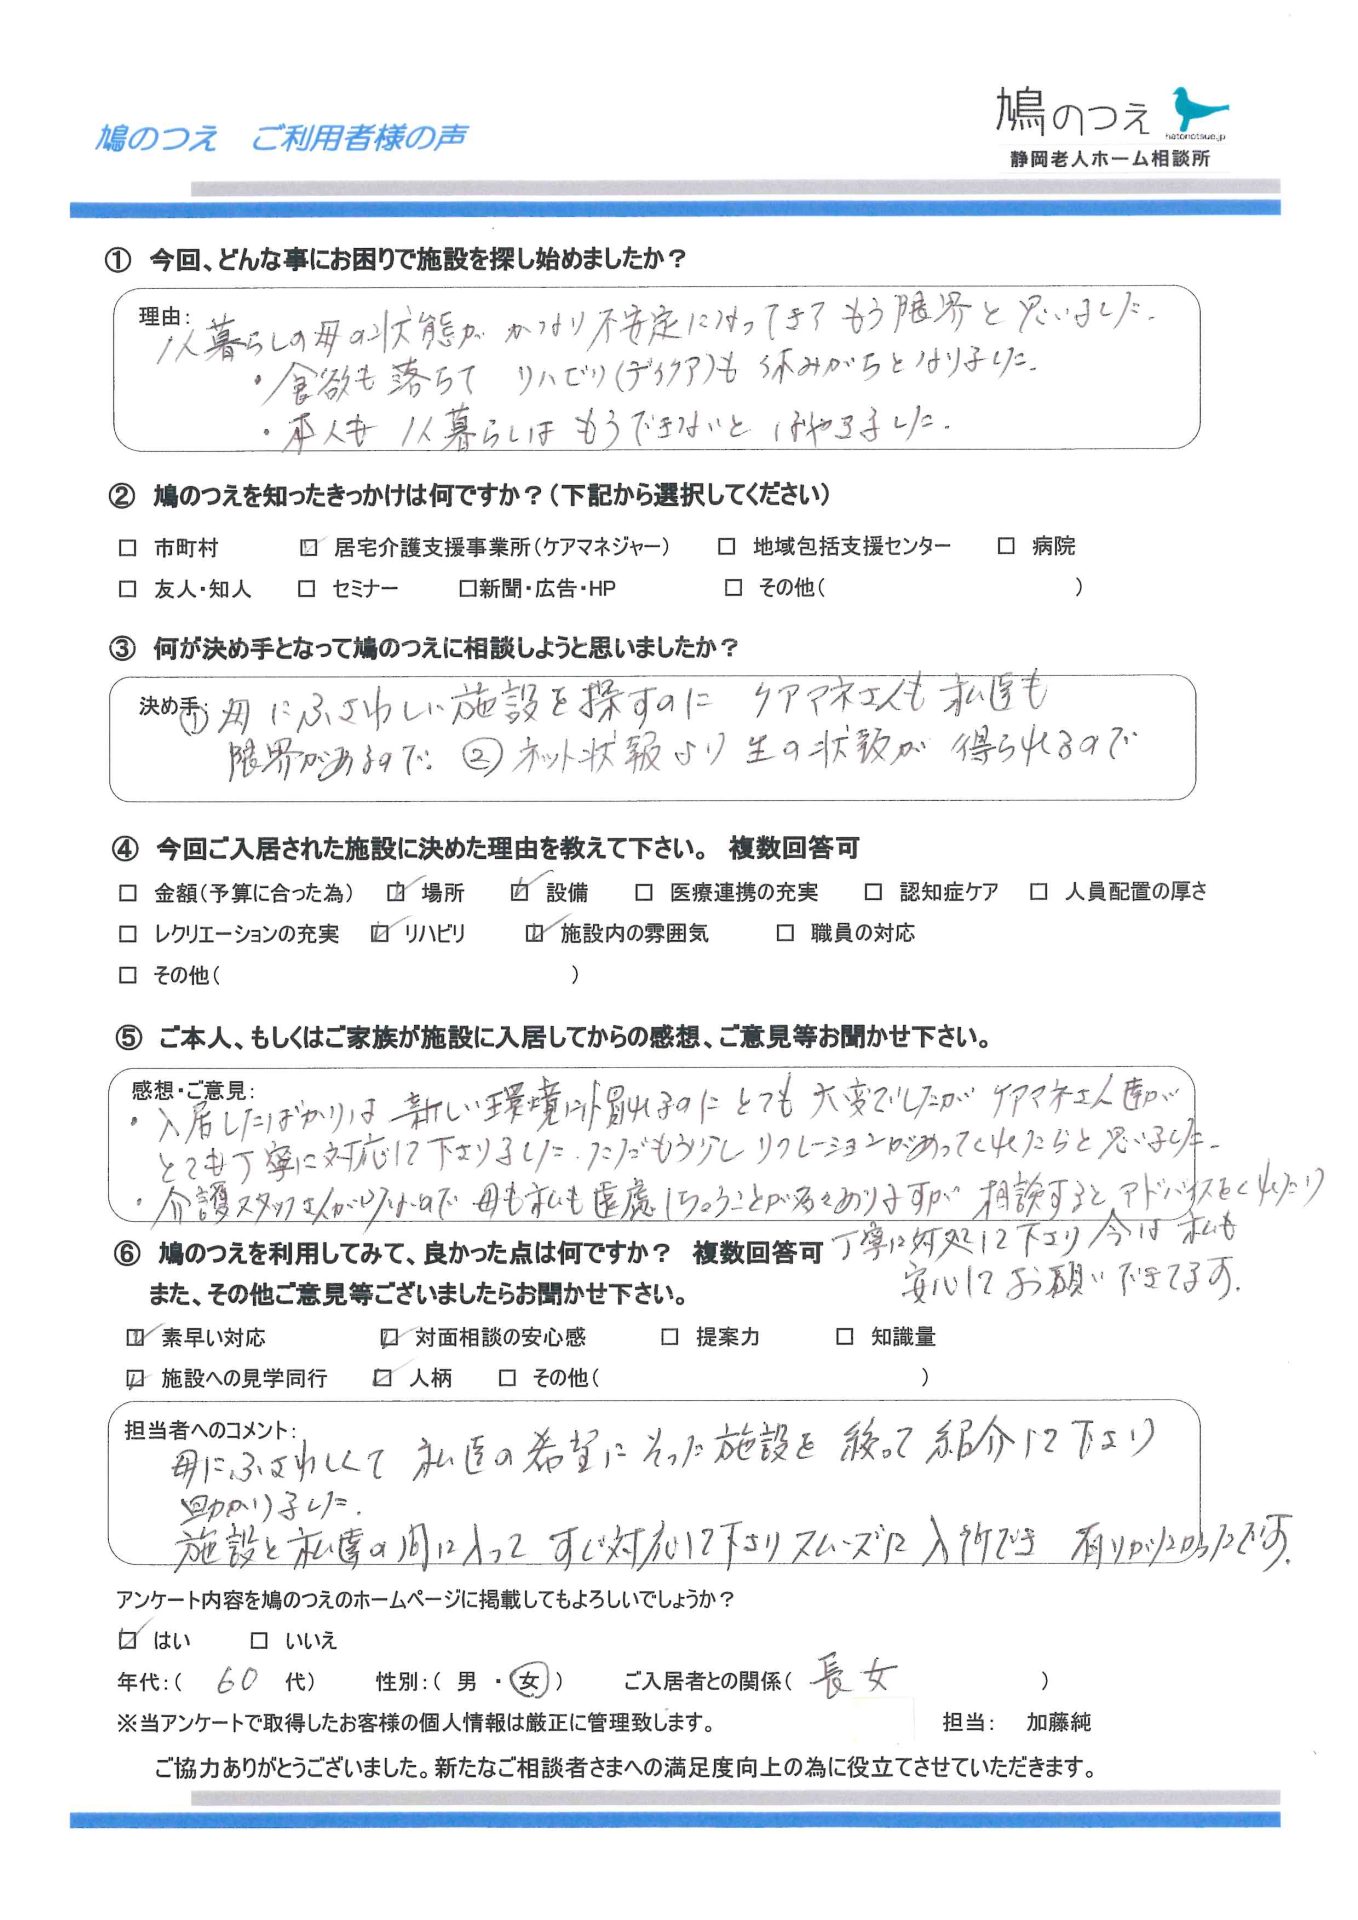 鳩のつえ　ご利用者様の声
鳩のつえ
hatonotsue.jp
静岡老人ホーム相談所
① 今回、どんな事にお困りで施設を探し始めましたか？
理由:
1人暮らしの母の状態が かなり不安定になってきて もう限界と思いました.
・食欲も落ちて リハビリ(デイケア)も 休みがちとなりました.
・本人も 1人暮らしは もうできないと ぼやきました.
② 鳩のつえを知ったきっかけは何ですか？（下記から選択してください）
□ 市町村 ☑ 居宅介護支援事業所（ケアマネジャー） □ 地域包括支援センター □ 病院
□ 友人・知人 □ セミナー □新聞・広告・HP □ その他（ ）
③ 何が決め手となって鳩のつえに相談しようと思いましたか？
決め手:
① 母にふさわしい施設を探すのに ケアマネさんも 私達も
限界があるので. ② ネット状報より 生の状報が 得られるので
④ 今回ご入居された施設に決めた理由を教えて下さい。 複数回答可
□ 金額（予算に合った為） ☑ 場所 ☑ 設備 □ 医療連携の充実 □ 認知症ケア □ 人員配置の厚さ
□ レクリエーションの充実 ☑ リハビリ ☑ 施設内の雰囲気 □ 職員の対応
□ その他（ ）
⑤ ご本人、もしくはご家族が施設に入居してからの感想、ご意見等お聞かせ下さい。
感想・ご意見:
・入居したばかりは 新しい環境に慣れるのに とても 大変でしたが ケアマネさん達が
とても丁寧に対応して下さりました. ただもう少し リクレーションがあってくれたらと思いました.
・介護スタッフさんが 母も私も遠慮しちゃうことが多々ありますが 相談するとアドバイスをくれたり
丁寧に対処して下さり 今は 私も
安心して お願いできてます.
⑥ 鳩のつえを利用してみて、良かった点は何ですか？ 複数回答可
また、その他ご意見等ございましたらお聞かせ下さい。
☑ 素早い対応 ☑ 対面相談の安心感 □ 提案力 □ 知識量
☑ 施設への見学同行 ☑ 人柄 □ その他（ ）
担当者へのコメント:
母にふさわしくて 私達の希望にそった施設を 絞って 紹介して下さり
助かりました.
施設と私達の間に入って すぐ対応して下さりスムーズに 入所でき 有りがたかったです.
アンケート内容を鳩のつえのホームページに掲載してもよろしいでしょうか？
☑ はい □ いいえ
年代：（ 60 代） 性別：（ 男 ・ 女 ） ご入居者との関係（ 長女 ）
※当アンケートで取得したお客様の個人情報は厳正に管理致します。 担当： 加藤純
ご協力ありがとうございました。新たなご相談者さまへの満足度向上の為に役立てさせていただきます。